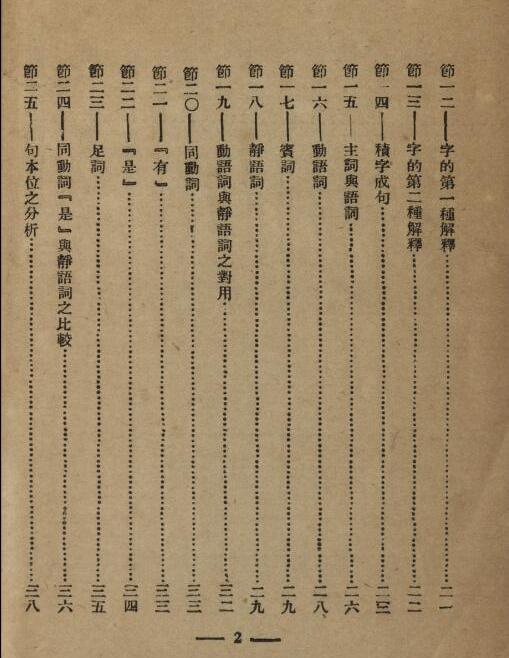 節一二——字的第一種解釋……二一
節一三——字的第二種解釋……二二
節一四——積字成句……二三
節一五——主詞與語詞……二六
節一六——動語詞……二八
節一七——賓詞……二九
節一八——靜語詞……二九
節一九——動語詞與靜語詞之對用……三二
節二〇——同動詞……三三
節二一——『有』……三三
節二二——『是』……三四
節二三——足詞……三五
節二四——同動詞『是』與靜語詞之比較……三六
節二五——句本位之分析……三八
— 2 —